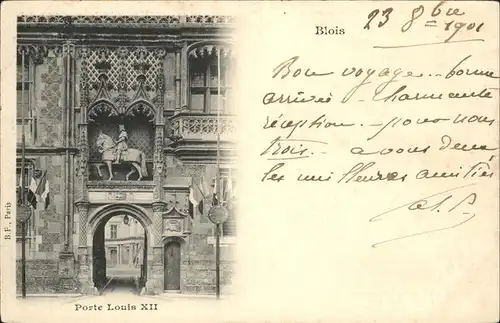 Blois
23 8bre 1901
Bon voyage.. bonne
arrivée - charmante
réception. - pour nous
trois. - a vous deux
les meilleures amitiés
B. F., Paris
Porte Louis XII